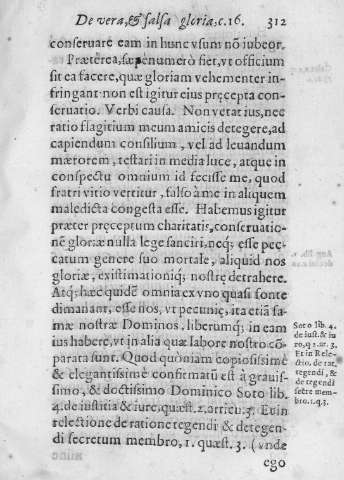 De vera, & falsa gloria, c. 16. 312
conseruare eam in hunc vsum nō iubeor.
Præterea, sæpenumerò fiet, vt officium
sit ea facere, quæ gloriam vehementer in-
fringant non est igitur eius pręcepta con-
seruatio. Verbi causa. Non vetat ius, nec
ratio flagitium meum amicis detegere, ad
capiendum consilium, vel ad leuandum
mærorem, testari in media luce, atque in
conspectu omnium id fecisse me, quod
fratri vitio vertitur, falsò à me in aliquem
maledicta congesta esse. Habemus igitur
præter pręceptum charitatis, conseruatio-
nē gloriæ nulla lege sanciri, neq; esse pec-
catum genere suo mortale, aliquid nos
gloriæ, existimationiq; nostrę detrahere.
Atq; hæc quidē omnia ex vno quasi fonte
dimanant, esse nos, vt pecunię, ita etiā fa-
mæ nostræ Dominos, liberumq; in eam
ius habere, vt in alia quæ labore nostro cō-
parata sunt. Quod quòniam copiosissimè
& elegantissimè confirmatū est à grauis-
simo, & doctissimo Dominico Soto lib.
4. de iustitia & iure, quæst. 2, articu. 3. Et in
relectione de ratione tegendi & detegen-
di secretum membro, 1. quæst. 3. (vnde
ego
Soto lib. 4.
de iust. & iu
re, q 2. ar. 3.
Et in Rele-
ctio. de rat.
tegendi, &
de tegendi
secre mem-
bro. 1. q. 3.